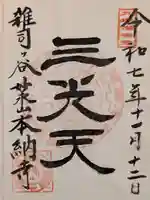 令和七年十一月十二日
三光天
雑司ヶ谷 本納寺